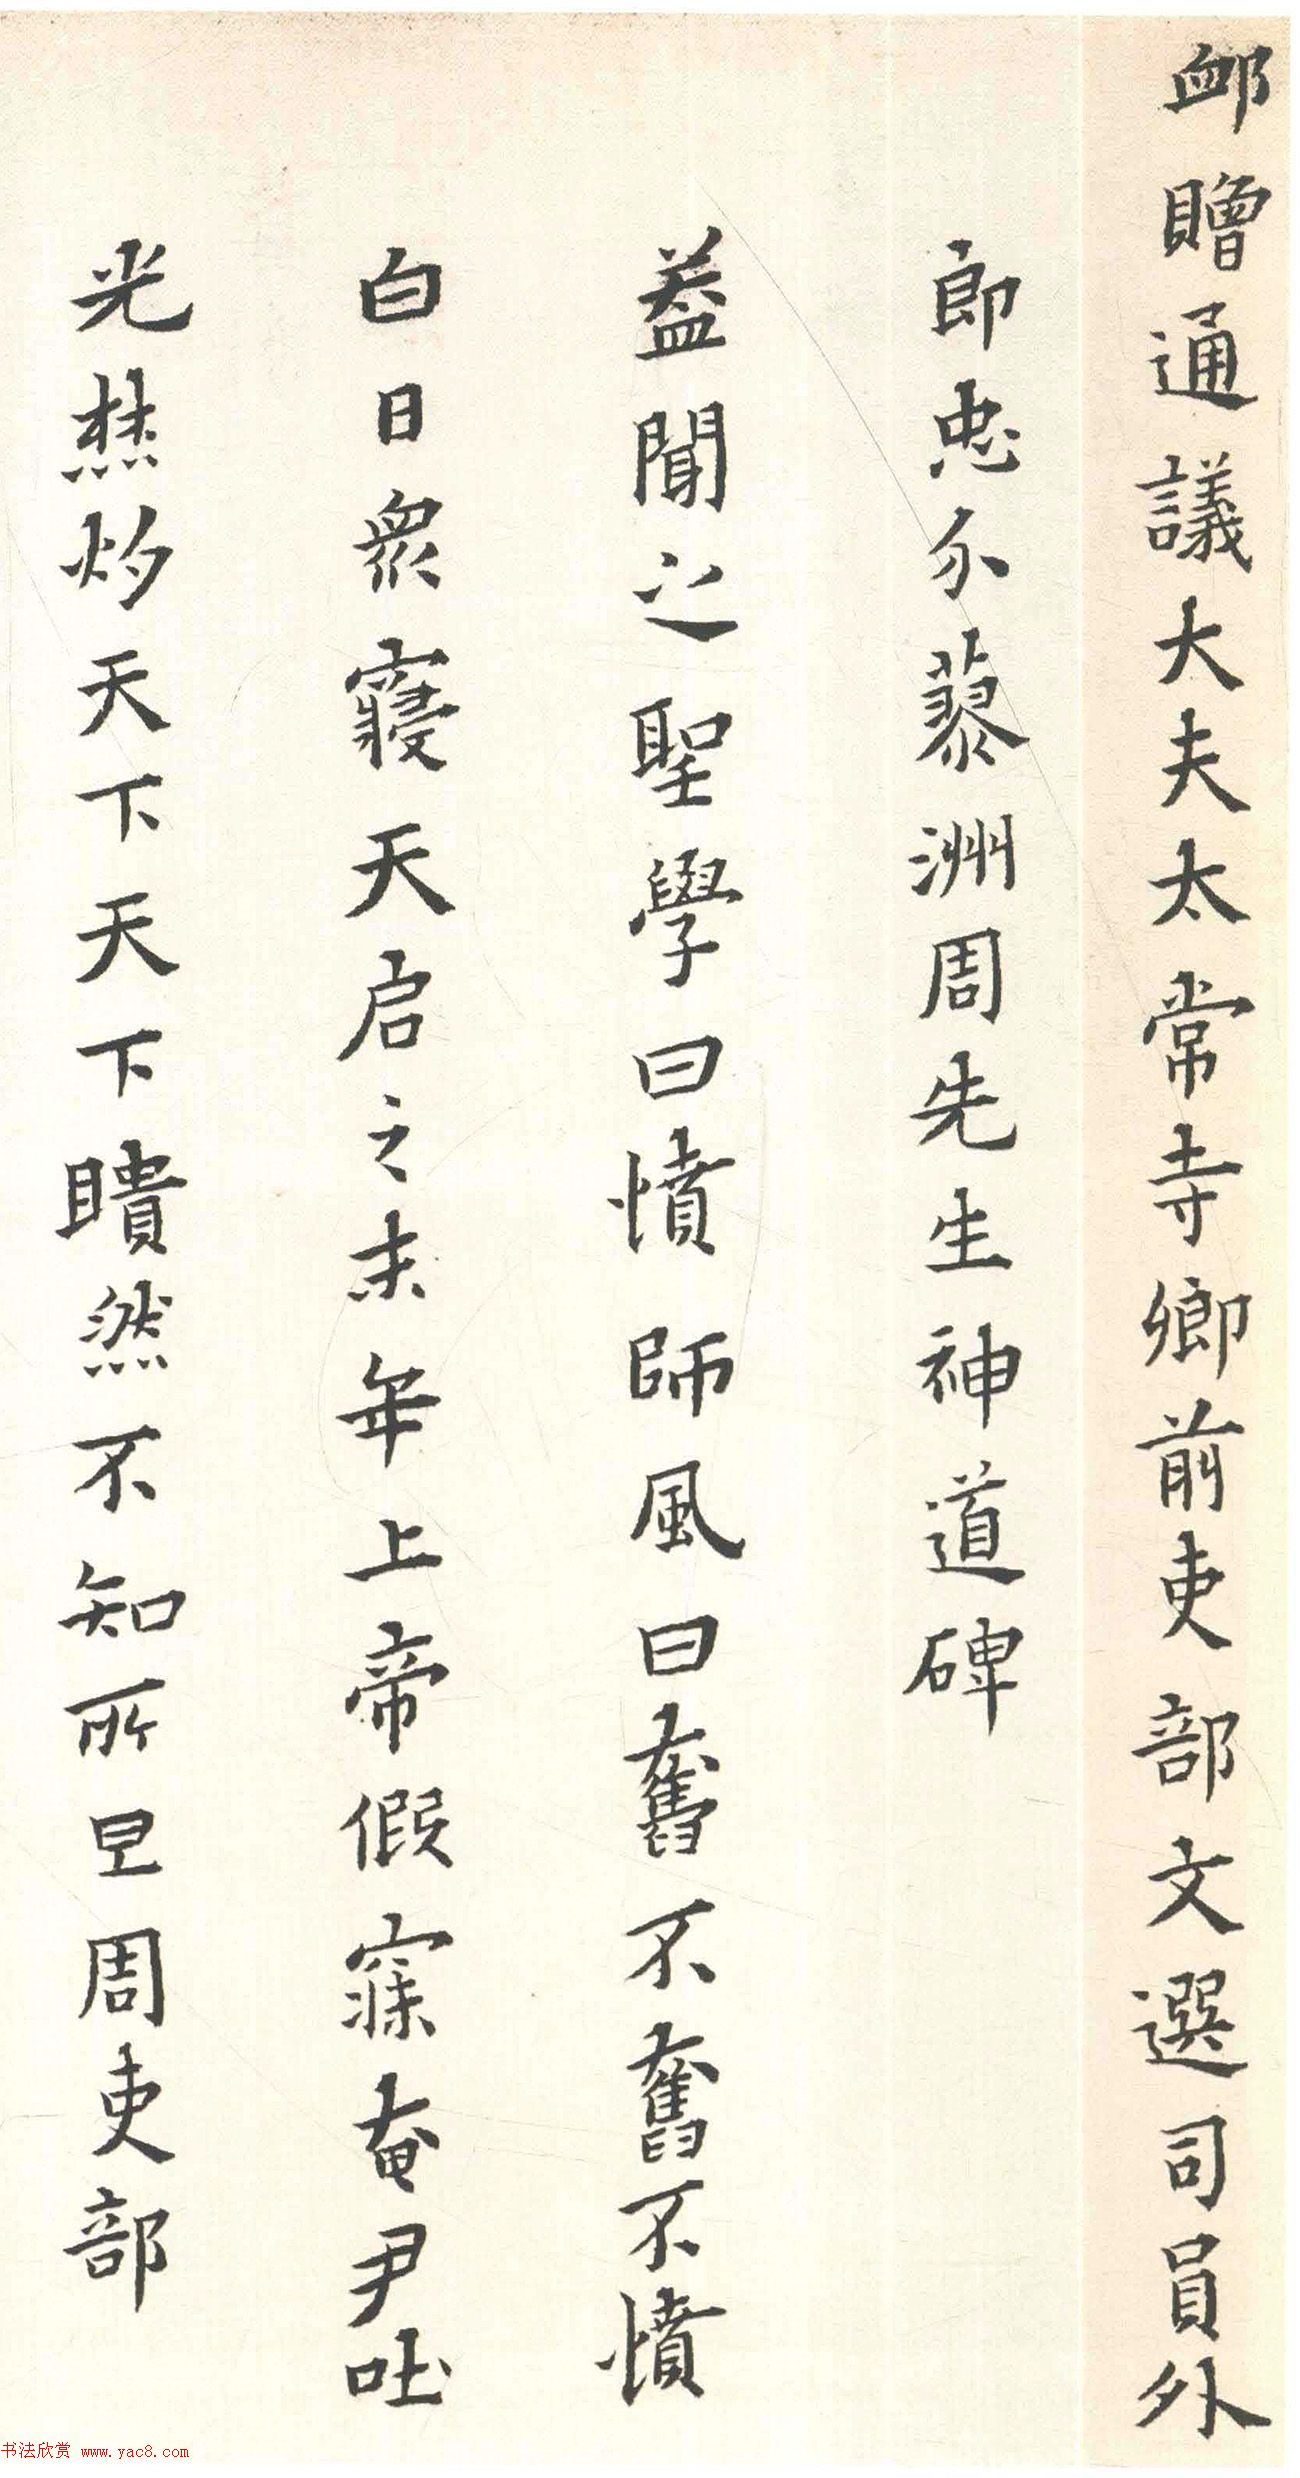 卹贈通議大夫太常寺卿前吏部文選司員外
郎忠介蓼洲周先生神道碑
蓋聞之聖學曰憤師風曰奮不奮不憤
白日眾寢天启之末年上帝假寐奄尹吐
光焚灼天下天下瞶然不知所㠯周吏部
书法欣赏 www.yac8.com